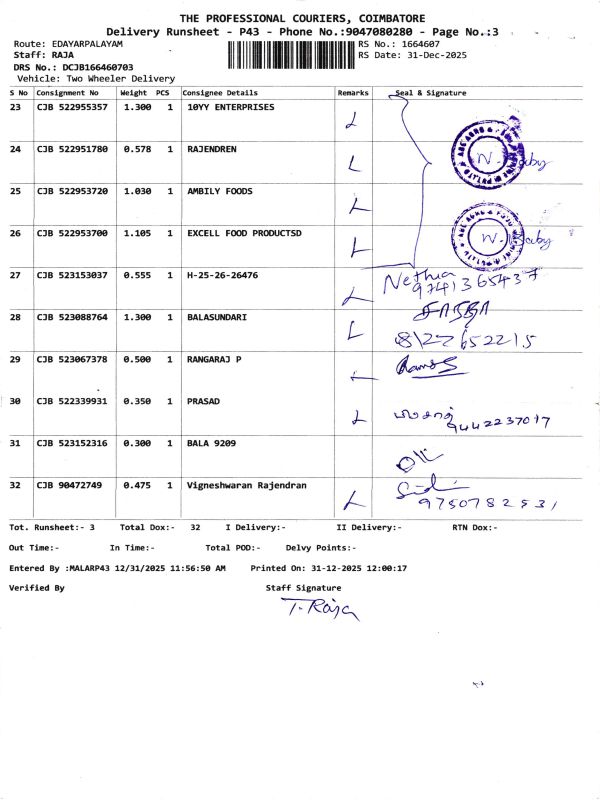 THE PROFESSIONAL COURIERS, COIMBATORE
Delivery Runsheet - P43 - Phone No.:9047080280 - Page No.:3
Route: EDAYARPALAYAM RS No.: 1664607
Staff: RAJA RS Date: 31-Dec-2025
DRS No.: DCJB166460703
Vehicle: Two Wheeler Delivery
S No Consignment No Weight PCS Consignee Details Remarks Seal & Signature
23 CJB 522955357 1.300 1 10YY ENTERPRISES L
24 CJB 522951780 0.578 1 RAJENDREN L N. Baby
25 CJB 522953720 1.030 1 AMBILY FOODS L
26 CJB 522953700 1.105 1 EXCELL FOOD PRODUCTSD L N. Baby
27 CJB 523153037 0.555 1 H-25-26-26476 L Nethra
9741365437
28 CJB 523088764 1.300 1 BALASUNDARI L
8127652215
29 CJB 523067378 0.500 1 RANGARAJ P L
30 CJB 522339931 0.350 1 PRASAD L
9442237017
31 CJB 523152316 0.300 1 BALA 9209
32 CJB 90472749 0.475 1 Vigneshwaran Rajendran L
9750782531
Tot. Runsheet:- 3 Total Dox:- 32 I Delivery:- II Delivery:- RTN Dox:-
Out Time:- In Time:- Total POD:- Delvy Points:-
Entered By :MALARP43 12/31/2025 11:56:50 AM Printed On: 31-12-2025 12:00:17
Verified By Staff Signature
T. Raja